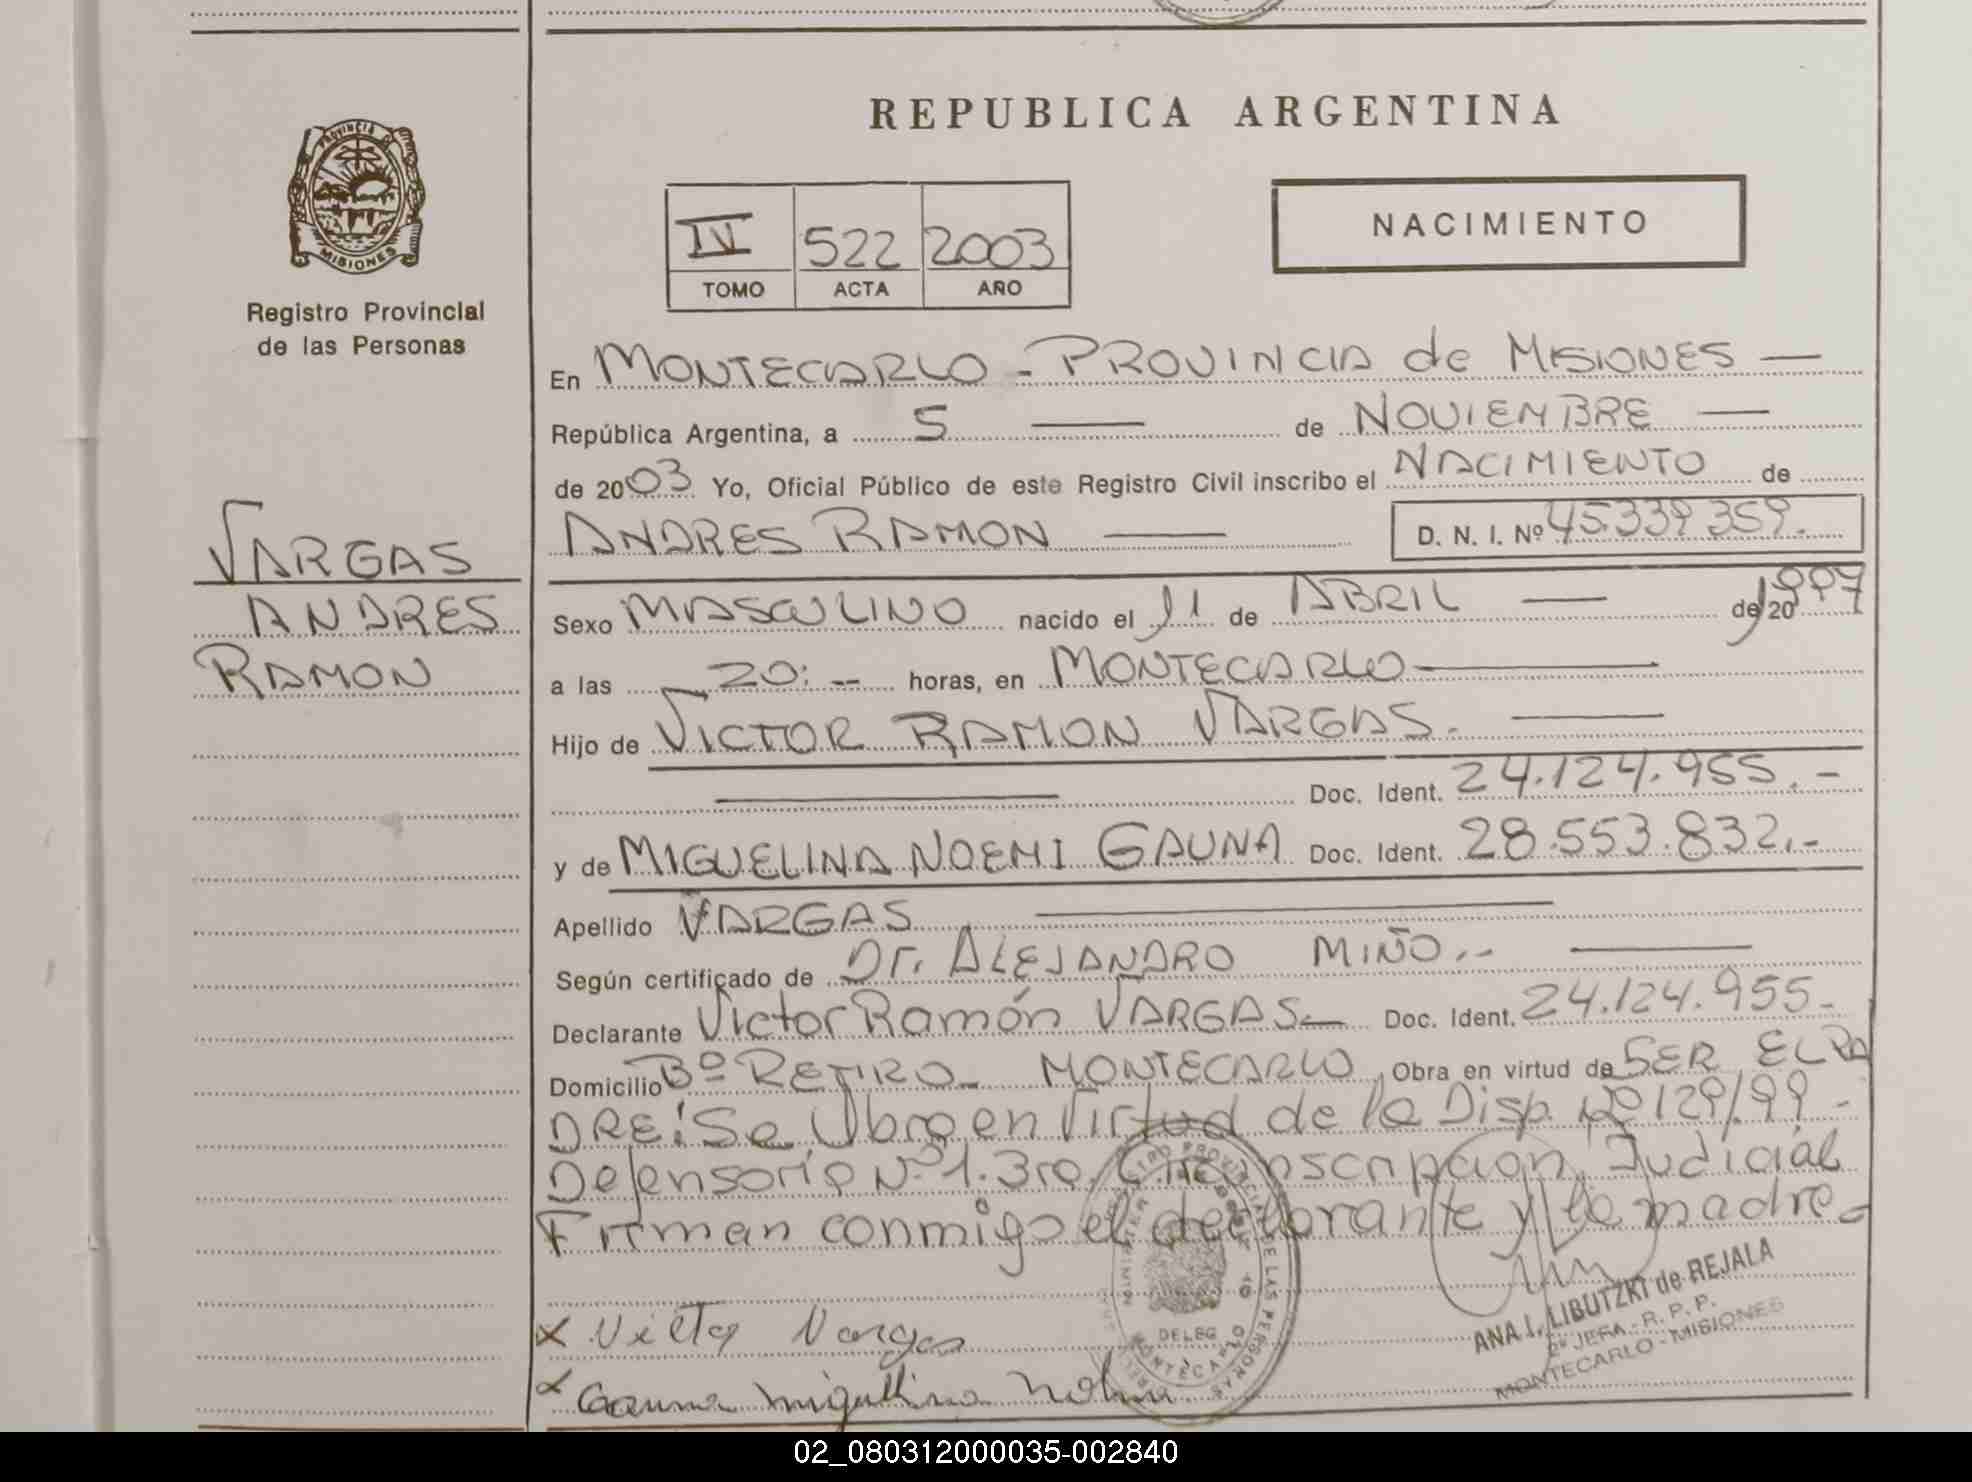 PROVINCIA DE
MISIONES
Registro Provincial
de las Personas
VARGAS
ANDRES
RAMON
REPUBLICA ARGENTINA
IV 522 2003
TOMO ACTA AÑO
NACIMIENTO
En MONTECARLO - PROVINCIA de MISIONES —
República Argentina, a 5 — de NOVIEMBRE —
de 2003 Yo, Oficial Público de este Registro Civil inscribo el NACIMIENTO de
ANDRES RAMON — D. N. I. Nº 45.339.359.
Sexo MASCULINO nacido el 11 de ABRIL — de 20 1997
a las 20: -- horas, en MONTECARLO —
Hijo de VICTOR RAMON VARGAS. —
— Doc. Ident. 24.124.955.-
y de MIGUELINA NOEMI GAUNA Doc. Ident. 28.553.832.-
Apellido VARGAS —
Según certificado de Dr. ALEJANDRO MIÑO.- —
Declarante Victor Ramón VARGAS — Doc. Ident. 24.124.955-
Domicilio Bº RETIRO - MONTECARLO Obra en virtud de SER EL PA
DRE: Se Obra en Virtud de la Disp. Nº 129/99 -
Defensoria Nº 1. 3ra. Circunscripcion Judicial
Firman conmigo el declarante y la madre -
x Victor Vargas
x Gauna Miguelina Nohemi
REGISTRO PROVINCIAL DE LAS PERSONAS
DELEG
MONTECARLO
ANA I. LIBUTZKI de REJALA
2º JEFA - R. P. P.
MONTECARLO - MISIONES
02_080312000035-002840